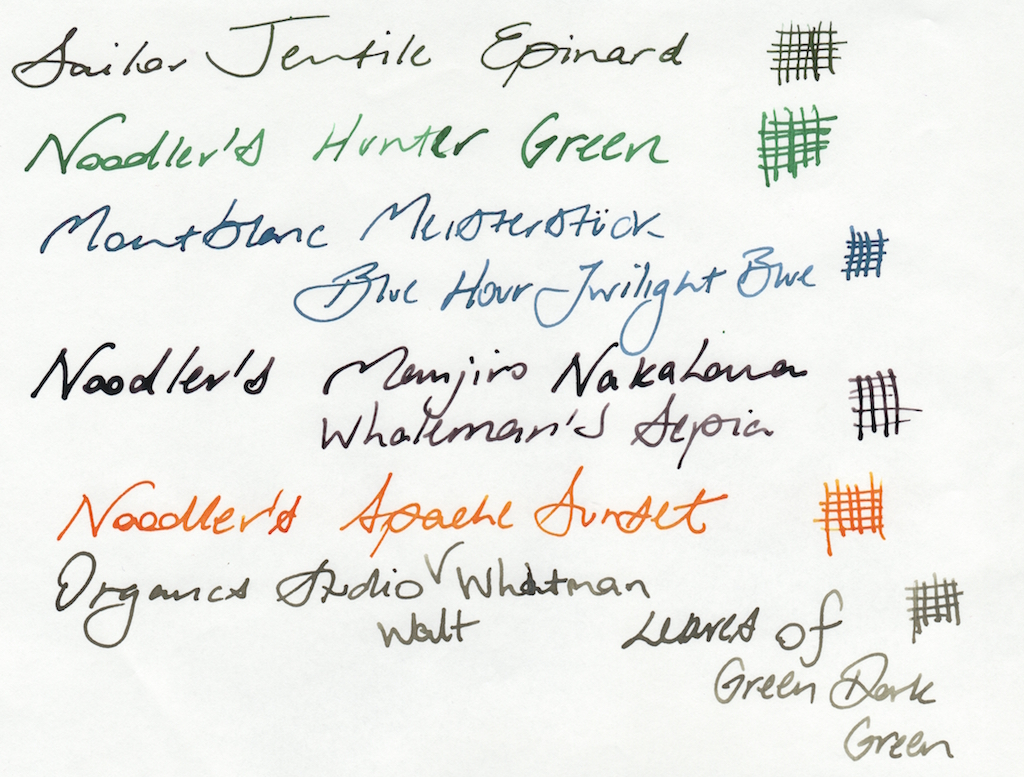 Sailor Jentile Epinard
Noodler's Hunter Green
Montblanc Meisterstück
Blue Hour Twilight Blue
Noodler's Manjiro Nakahama
Whaleman's Sepia
Noodler's Apache Sunset
Organics Studio Whitman
Walt Leaves of
Green Dark
Green